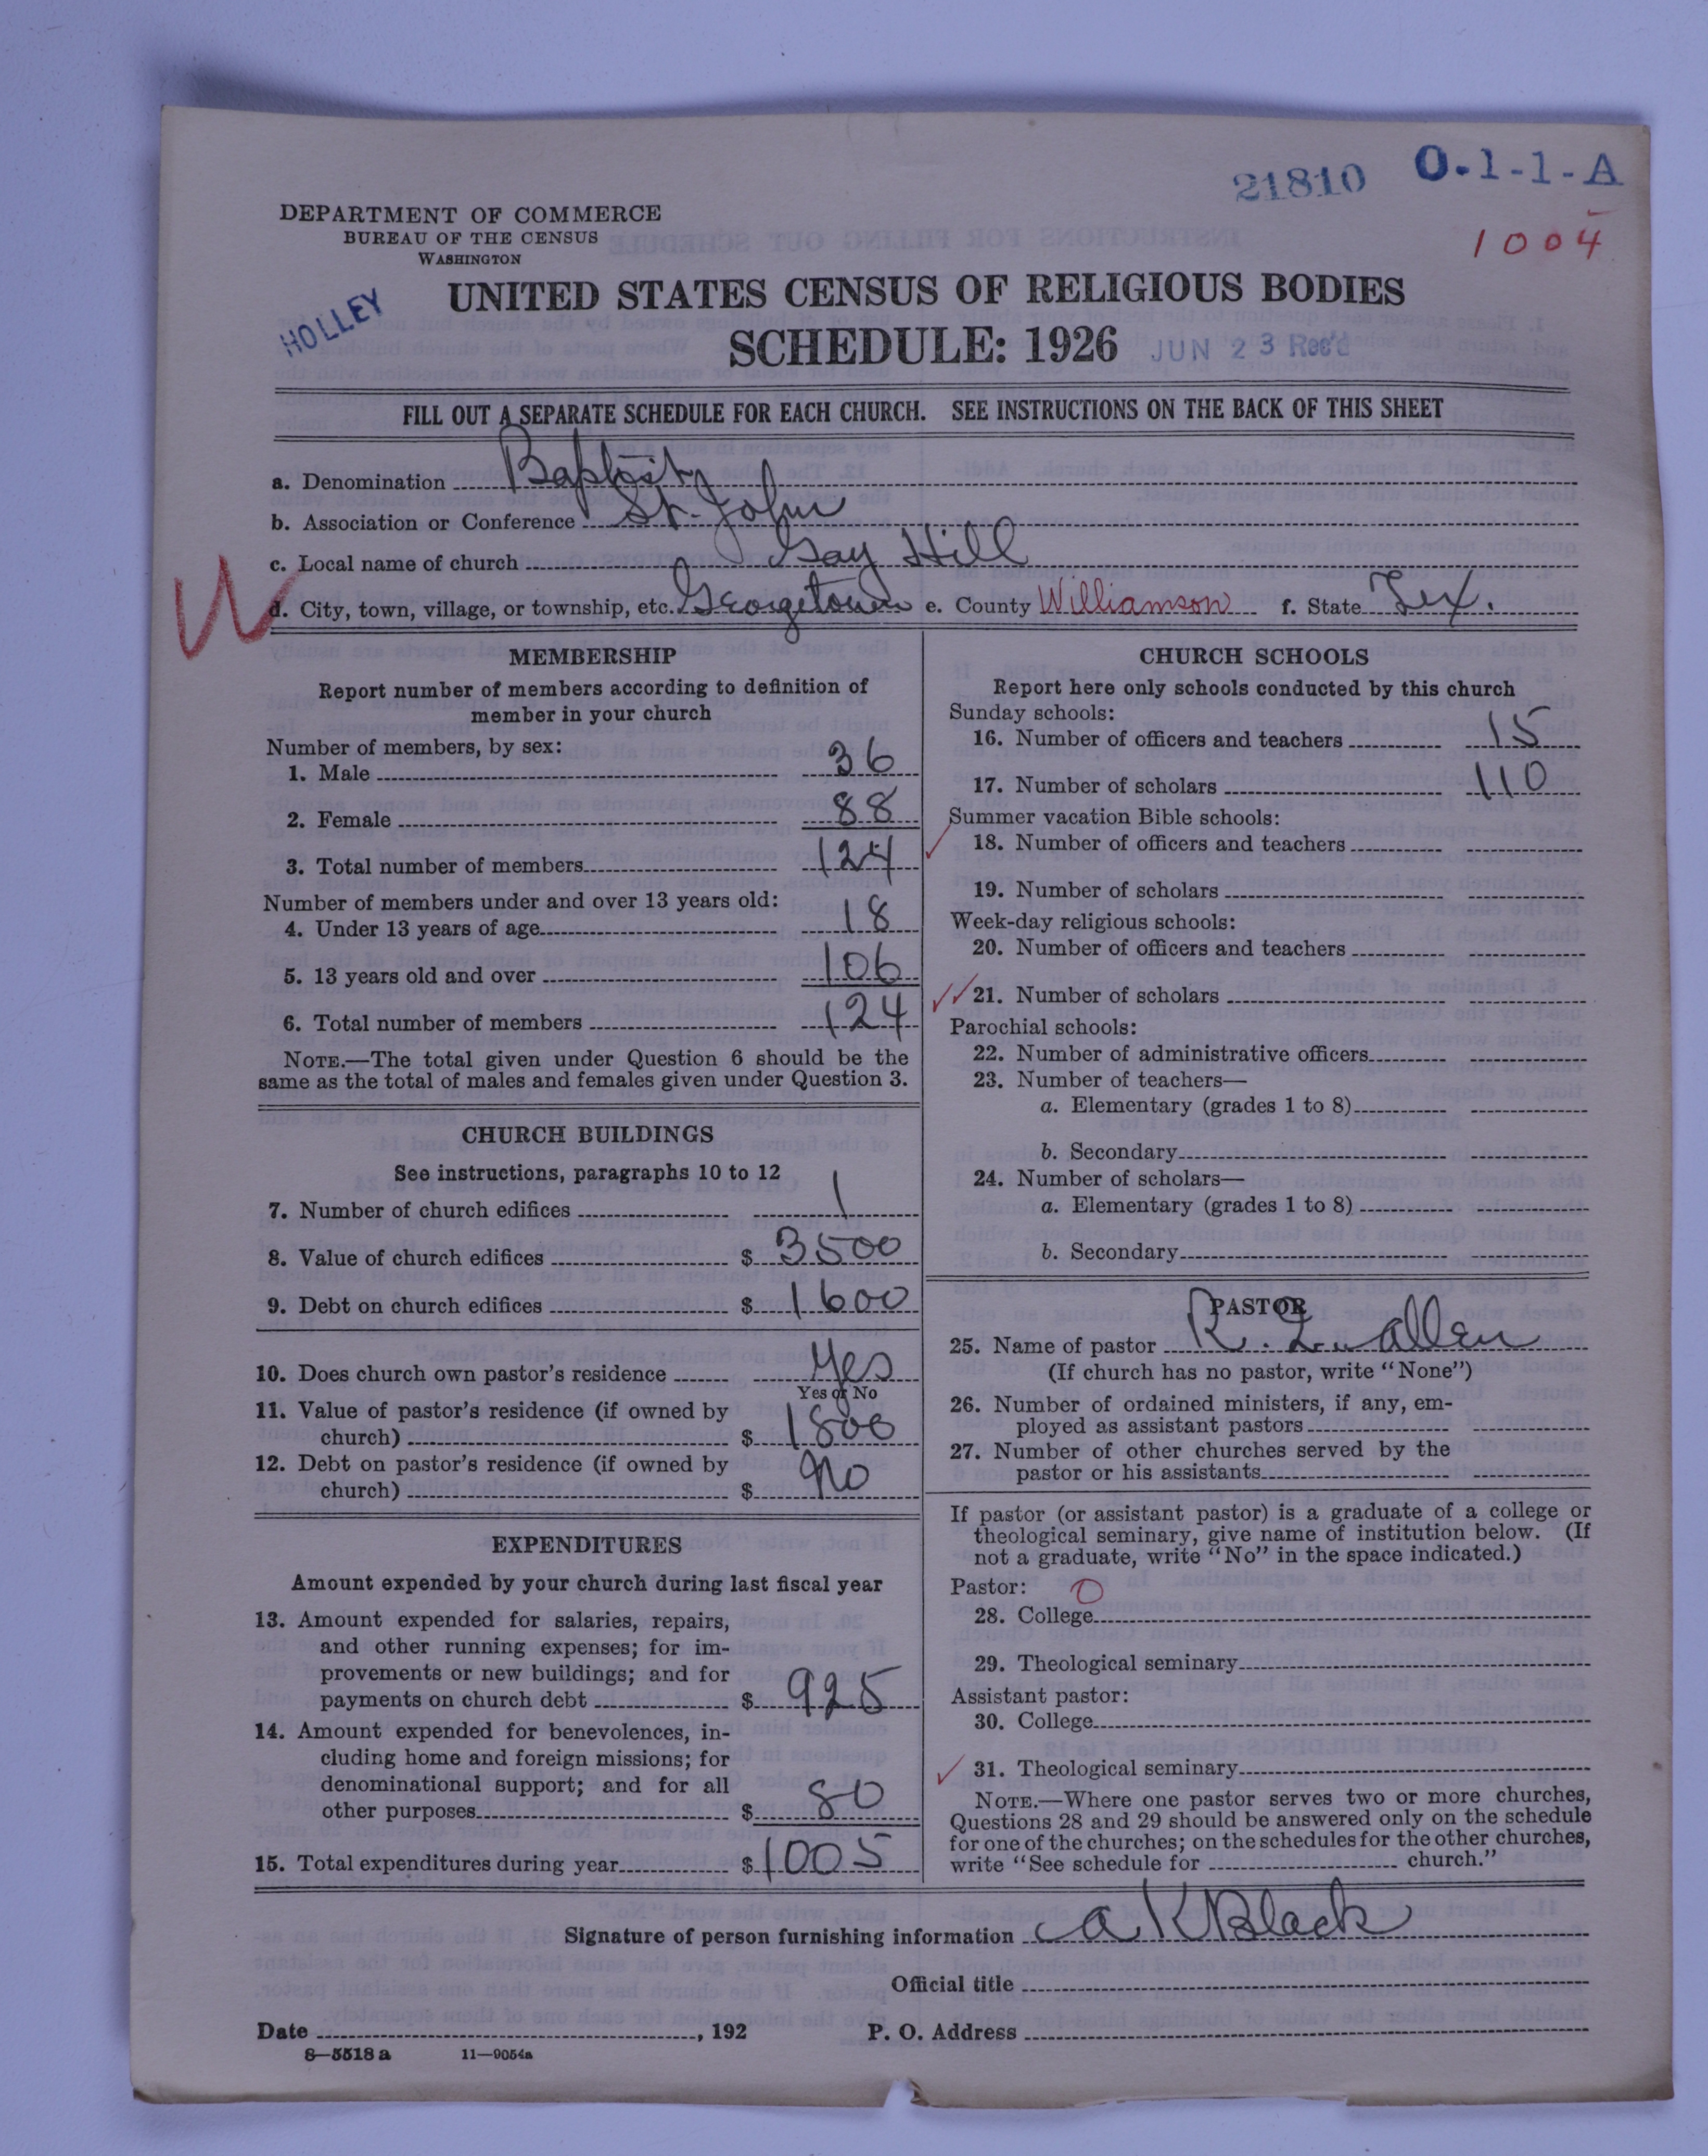 21810 O.1-1-A
1004
DEPARTMENT OF COMMERCE
BUREAU OF THE CENSUS
WASHINGTON
HOLLEY
UNITED STATES CENSUS OF RELIGIOUS BODIES
SCHEDULE: 1926 JUN 23 Rec'd
FILL OUT A SEPARATE SCHEDULE FOR EACH CHURCH. SEE INSTRUCTIONS ON THE BACK OF THIS SHEET
a. Denomination Baptist
b. Association or Conference St. John
c. Local name of church Gay Hill
W
d. City, town, village, or township, etc. Georgetown e. County Williamson f. State Tex.
MEMBERSHIP
Report number of members according to definition of
member in your church
Number of members, by sex:
1. Male 36
2. Female 88
3. Total number of members 124
Number of members under and over 13 years old:
4. Under 13 years of age 18
5. 13 years old and over 106
6. Total number of members 124
NOTE.—The total given under Question 6 should be the
same as the total of males and females given under Question 3.
CHURCH BUILDINGS
See instructions, paragraphs 10 to 12
7. Number of church edifices 1
8. Value of church edifices $ 3500
9. Debt on church edifices $ 1600
10. Does church own pastor's residence Yes
Yes or No
11. Value of pastor's residence (if owned by
church) $ 1800
12. Debt on pastor's residence (if owned by
church) $ No
EXPENDITURES
Amount expended by your church during last fiscal year
13. Amount expended for salaries, repairs,
and other running expenses; for im-
provements or new buildings; and for
payments on church debt $ 925
14. Amount expended for benevolences, in-
cluding home and foreign missions; for
denominational support; and for all
other purposes $ 80
15. Total expenditures during year $ 1005
CHURCH SCHOOLS
Report here only schools conducted by this church
Sunday schools:
16. Number of officers and teachers 15
17. Number of scholars 110
Summer vacation Bible schools:
18. Number of officers and teachers
19. Number of scholars
Week-day religious schools:
20. Number of officers and teachers
21. Number of scholars
Parochial schools:
22. Number of administrative officers
23. Number of teachers—
a. Elementary (grades 1 to 8)
b. Secondary
24. Number of scholars—
a. Elementary (grades 1 to 8)
b. Secondary
PASTOR
25. Name of pastor R. L. Allen
(If church has no pastor, write "None")
26. Number of ordained ministers, if any, em-
ployed as assistant pastors
27. Number of other churches served by the
pastor or his assistants
If pastor (or assistant pastor) is a graduate of a college or
theological seminary, give name of institution below. (If
not a graduate, write "No" in the space indicated.)
Pastor: 0
28. College
29. Theological seminary
Assistant pastor:
30. College
31. Theological seminary
NOTE.—Where one pastor serves two or more churches,
Questions 28 and 29 should be answered only on the schedule
for one of the churches; on the schedules for the other churches,
write "See schedule for church."
Signature of person furnishing information A K Black
Official title
Date , 192 P. O. Address
8—5518 a 11—9054a